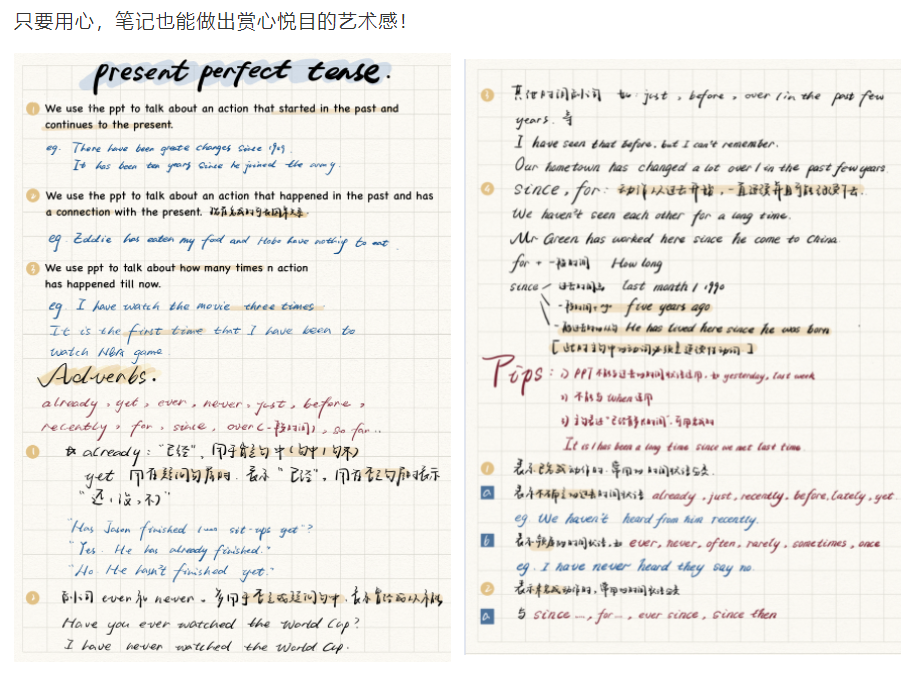 只要用心，笔记也能做出赏心悦目的艺术感！
present perfect tense.
1 We use the ppt to talk about an action that started in the past and
continues to the present.
eg. There have been greate changes since 1909.
It has been ten years since he joined the army.
2 We use the ppt to talk about an action that happened in the past and has
a connection with the present.
eg. Eddie has eaten my food and Hobo have nothing to eat.
3 We use ppt to talk about how many times n action
has happened till now.
eg I have watch the movie three times
It is the first time that I have been to
watch NBA game.
Adverbs.
already, yet, ever, never, just, before,
recently, for, since, over(一段时间), so far..
1 already: "已经", 用于肯定句中(句中/句末)
yet 用在疑问句后时, 表示"已经", 用在否定句后时表示
"还, 没, 不)"
"Has Jason finished sit-ups yet"?
"Yes. He has already finished."
"No. He hasn't finished yet."
2 副词 ever和 never. 多用于否定或疑问句中,
Have you ever watched the World Cup?
I have never watched the World Cup.
3 其他时间副词 如: just, before, over/in the past few
years. 等
I have seen that before, but I can't remember.
Our hometown has changed a lot over/in the past few years.
4 since, for: 动作从过去开始, 一直延续并且可能继续下去.
We haven't seen each other for a long time.
Mr Green has worked here since he come to China
for + 一段时间 How long
since 过去时间点 last month / 1990
一段时间+ago five years ago
He has lived here since he was born
Pips: 1) PPT 不能与过去的时间状语连用, 如 yesterday, last week
不能与 when 连用
It is/has been a long time since we met last time.
1 表示已完成动作时, 常用的时间状语分类.
a 表示不确定的过去时间状语 already, just, recently, before, lately, yet.
eg. We haven't heard from him recently.
b 表示频度的时间状语, 如 ever, never, often, rarely, sometimes, once
eg. I have never heard they say no.
2 表示未完成动作时, 常用的时间状语分类
a 与 since ..., for..., ever since, since then